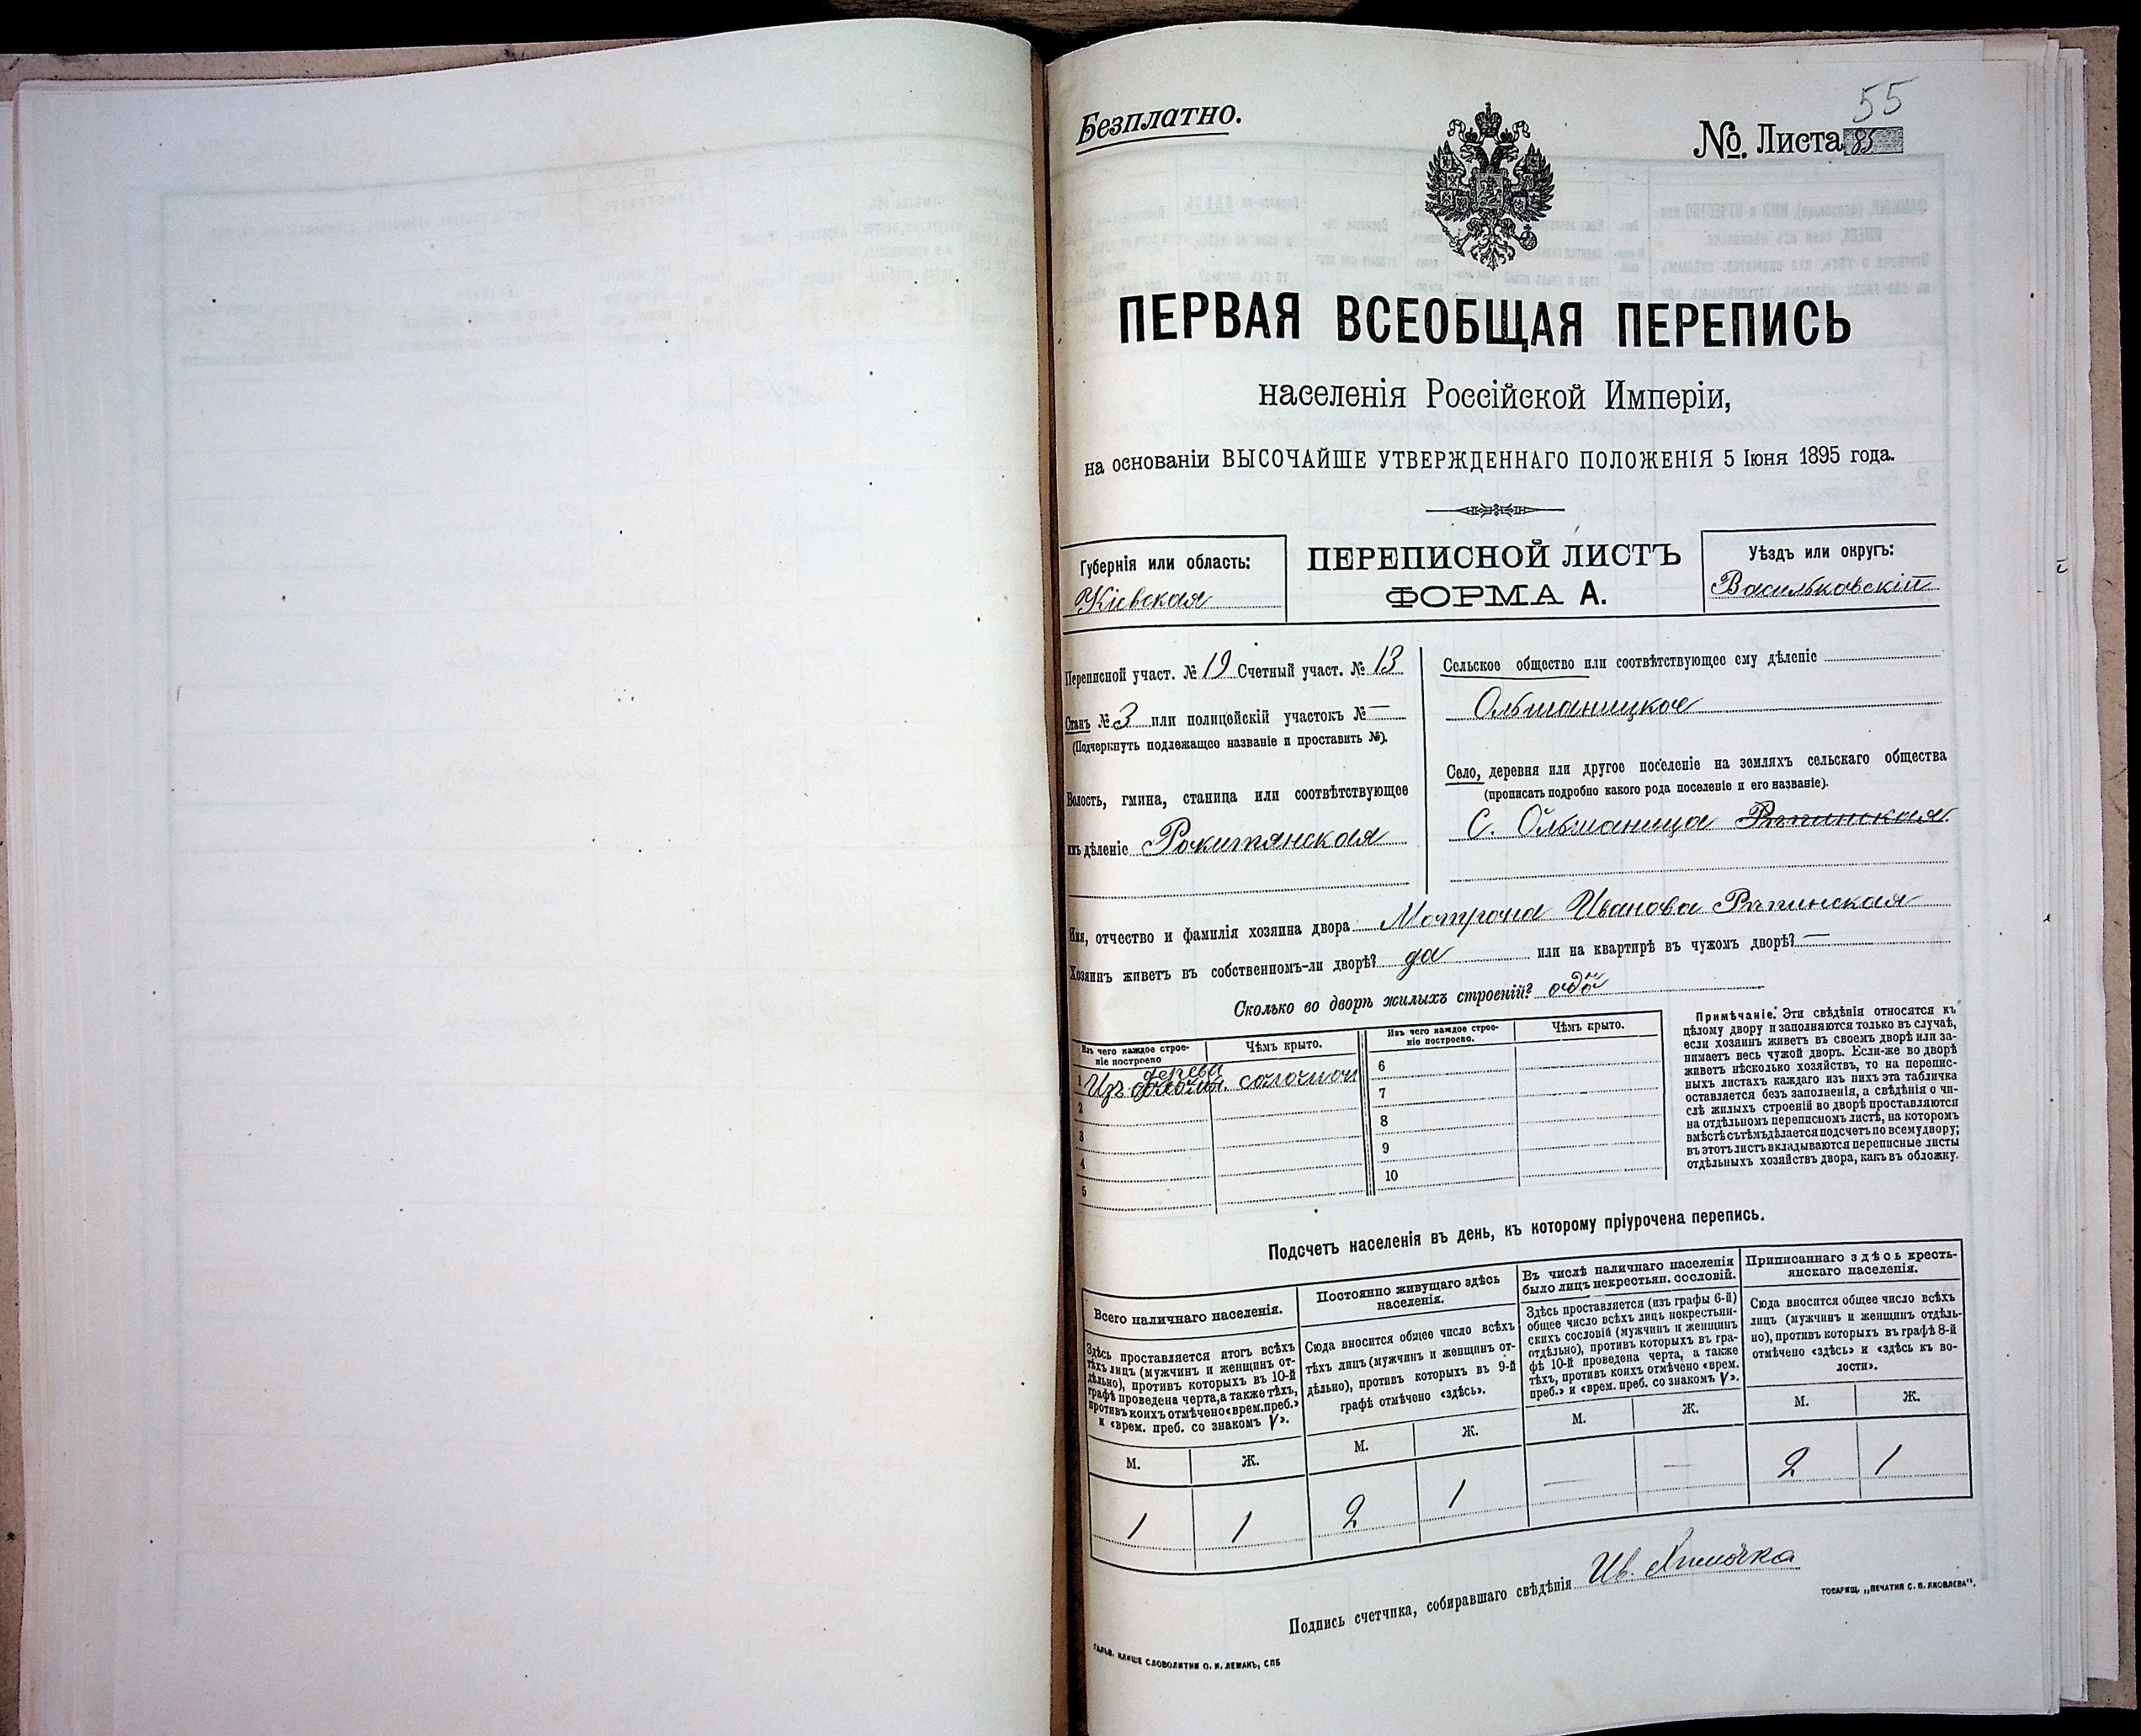 55
Безплатно.
№. Листа 85
ПЕРВАЯ ВСЕОБЩАЯ ПЕРЕПИСЬ
населенія Россійской Имперіи,
на основаніи ВЫСОЧАЙШЕ УТВЕРЖДЕННАГО ПОЛОЖЕНІЯ 5 Іюня 1895 года.
Губернія или область:
Кіевская
ПЕРЕПИСНОЙ ЛИСТЪ
ФОРМА А.
Уѣздъ или округъ:
Васильковскій
Переписной участ. № 19 Счетный участ. № 13
Станъ № 3 или полицейскій участокъ № —
(Подчеркнуть подлежащее названіе и проставить №).
Волость, гмина, станица или соотвѣтствующее
имъ дѣленіе Рокитянская
Сельское общество или соотвѣтствующее ему дѣленіе
Ольшаницкое
Село, деревня или другое поселеніе на земляхъ сельскаго общества
(прописать подробно какого рода поселеніе и его названіе).
С. Ольшаница
Имя, отчество и фамилія хозяина двора Матрона Иванова Рѣпинская
Хозяинъ живетъ въ собственномъ-ли дворѣ? да или на квартирѣ въ чужомъ дворѣ? —
Сколько во дворѣ жилыхъ строеній?
Изъ чего каждое строе-
ніе построено
Чѣмъ крыто.
1 Изъ дерева соломой
2
3
4
5
Изъ чего каждое строе-
ніе построено.
Чѣмъ крыто.
6
7
8
9
10
Примѣчаніе. Эти свѣдѣнія относятся къ
цѣлому двору и заполняются только въ случаѣ,
если хозяинъ живетъ въ своемъ дворѣ или за-
нимаетъ весь чужой дворъ. Если-же во дворѣ
живетъ нѣсколько хозяйствъ, то на перепис-
ныхъ листахъ каждаго изъ нихъ эта табличка
оставляется безъ заполненія, а свѣдѣнія о чи-
слѣ жилыхъ строеній во дворѣ проставляются
на отдѣльномъ переписномъ листѣ, на которомъ
вмѣстѣ съ тѣмъ дѣлается подсчетъ по всему двору;
въ этотъ листъ вкладываются переписные листы
отдѣльныхъ хозяйствъ двора, какъ въ обложку.
Подсчетъ населенія въ день, къ которому пріурочена перепись.
Всего наличнаго населенія.
Здѣсь проставляется итогъ всѣхъ
тѣхъ лицъ (мужчинъ и женщинъ от-
дѣльно), противъ которыхъ въ 10-й
графѣ проведена черта, а также тѣхъ,
противъ коихъ отмѣчено «врем. преб.»
и «врем. преб. со знакомъ V».
М. Ж.
1 1
Постоянно живущаго здѣсь
населенія.
Сюда вносится общее число всѣхъ
тѣхъ лицъ (мужчинъ и женщинъ от-
дѣльно), противъ которыхъ въ 9-й
графѣ отмѣчено «здѣсь».
М. Ж.
2 1
Въ числѣ наличнаго населенія
было лицъ некрестьян. сословій.
Здѣсь проставляется (изъ графы 6-й)
общее число всѣхъ лицъ некрестьян-
скихъ сословій (мужчинъ и женщинъ
отдѣльно), противъ которыхъ въ гра-
фѣ 10-й проведена черта, а также
тѣхъ, противъ коихъ отмѣчено «врем.
преб.» и «врем. преб. со знакомъ V».
М. Ж.
— —
Приписаннаго здѣсь кресть-
янскаго населенія.
Сюда вносится общее число всѣхъ
лицъ (мужчинъ и женщинъ отдѣль-
но), противъ которыхъ въ графѣ 8-й
отмѣчено «здѣсь» и «здѣсь къ во-
лости».
М. Ж.
2 1
Подпись счетчика, собиравшаго свѣдѣнія Ив.
ГАЛЬВ. КЛИШЕ СЛОВОЛИТНИ О. И. ЛЕМАНЪ, СПБ
ТОВАРИЩ. „ПЕЧАТНЯ С. П. ЯКОВЛЕВА".